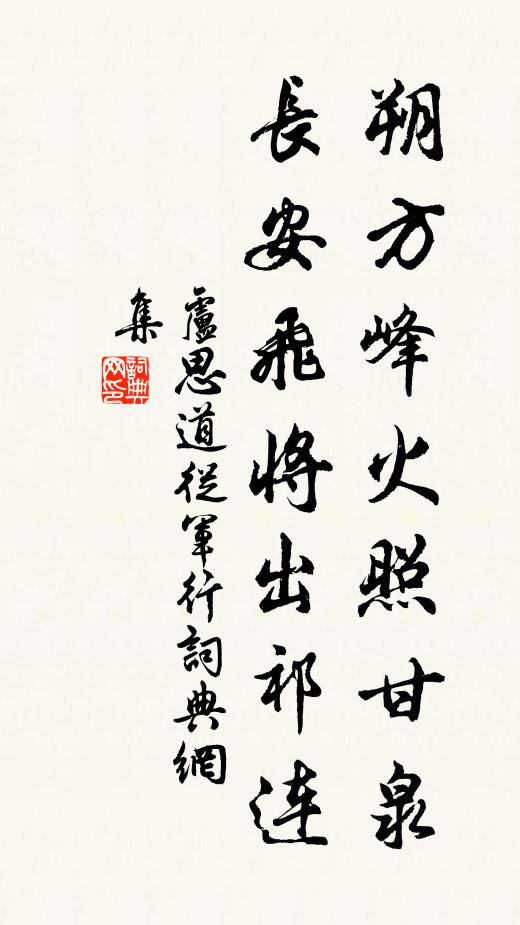 朔方峰火照甘泉
長安飛將出祁连
盧思道從軍行詞典網
集
詞典
网印